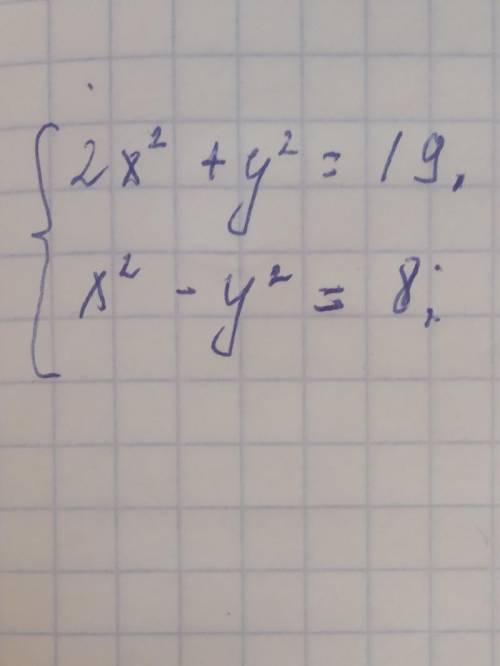 2x² + y² = 19,
x² - y² = 8;